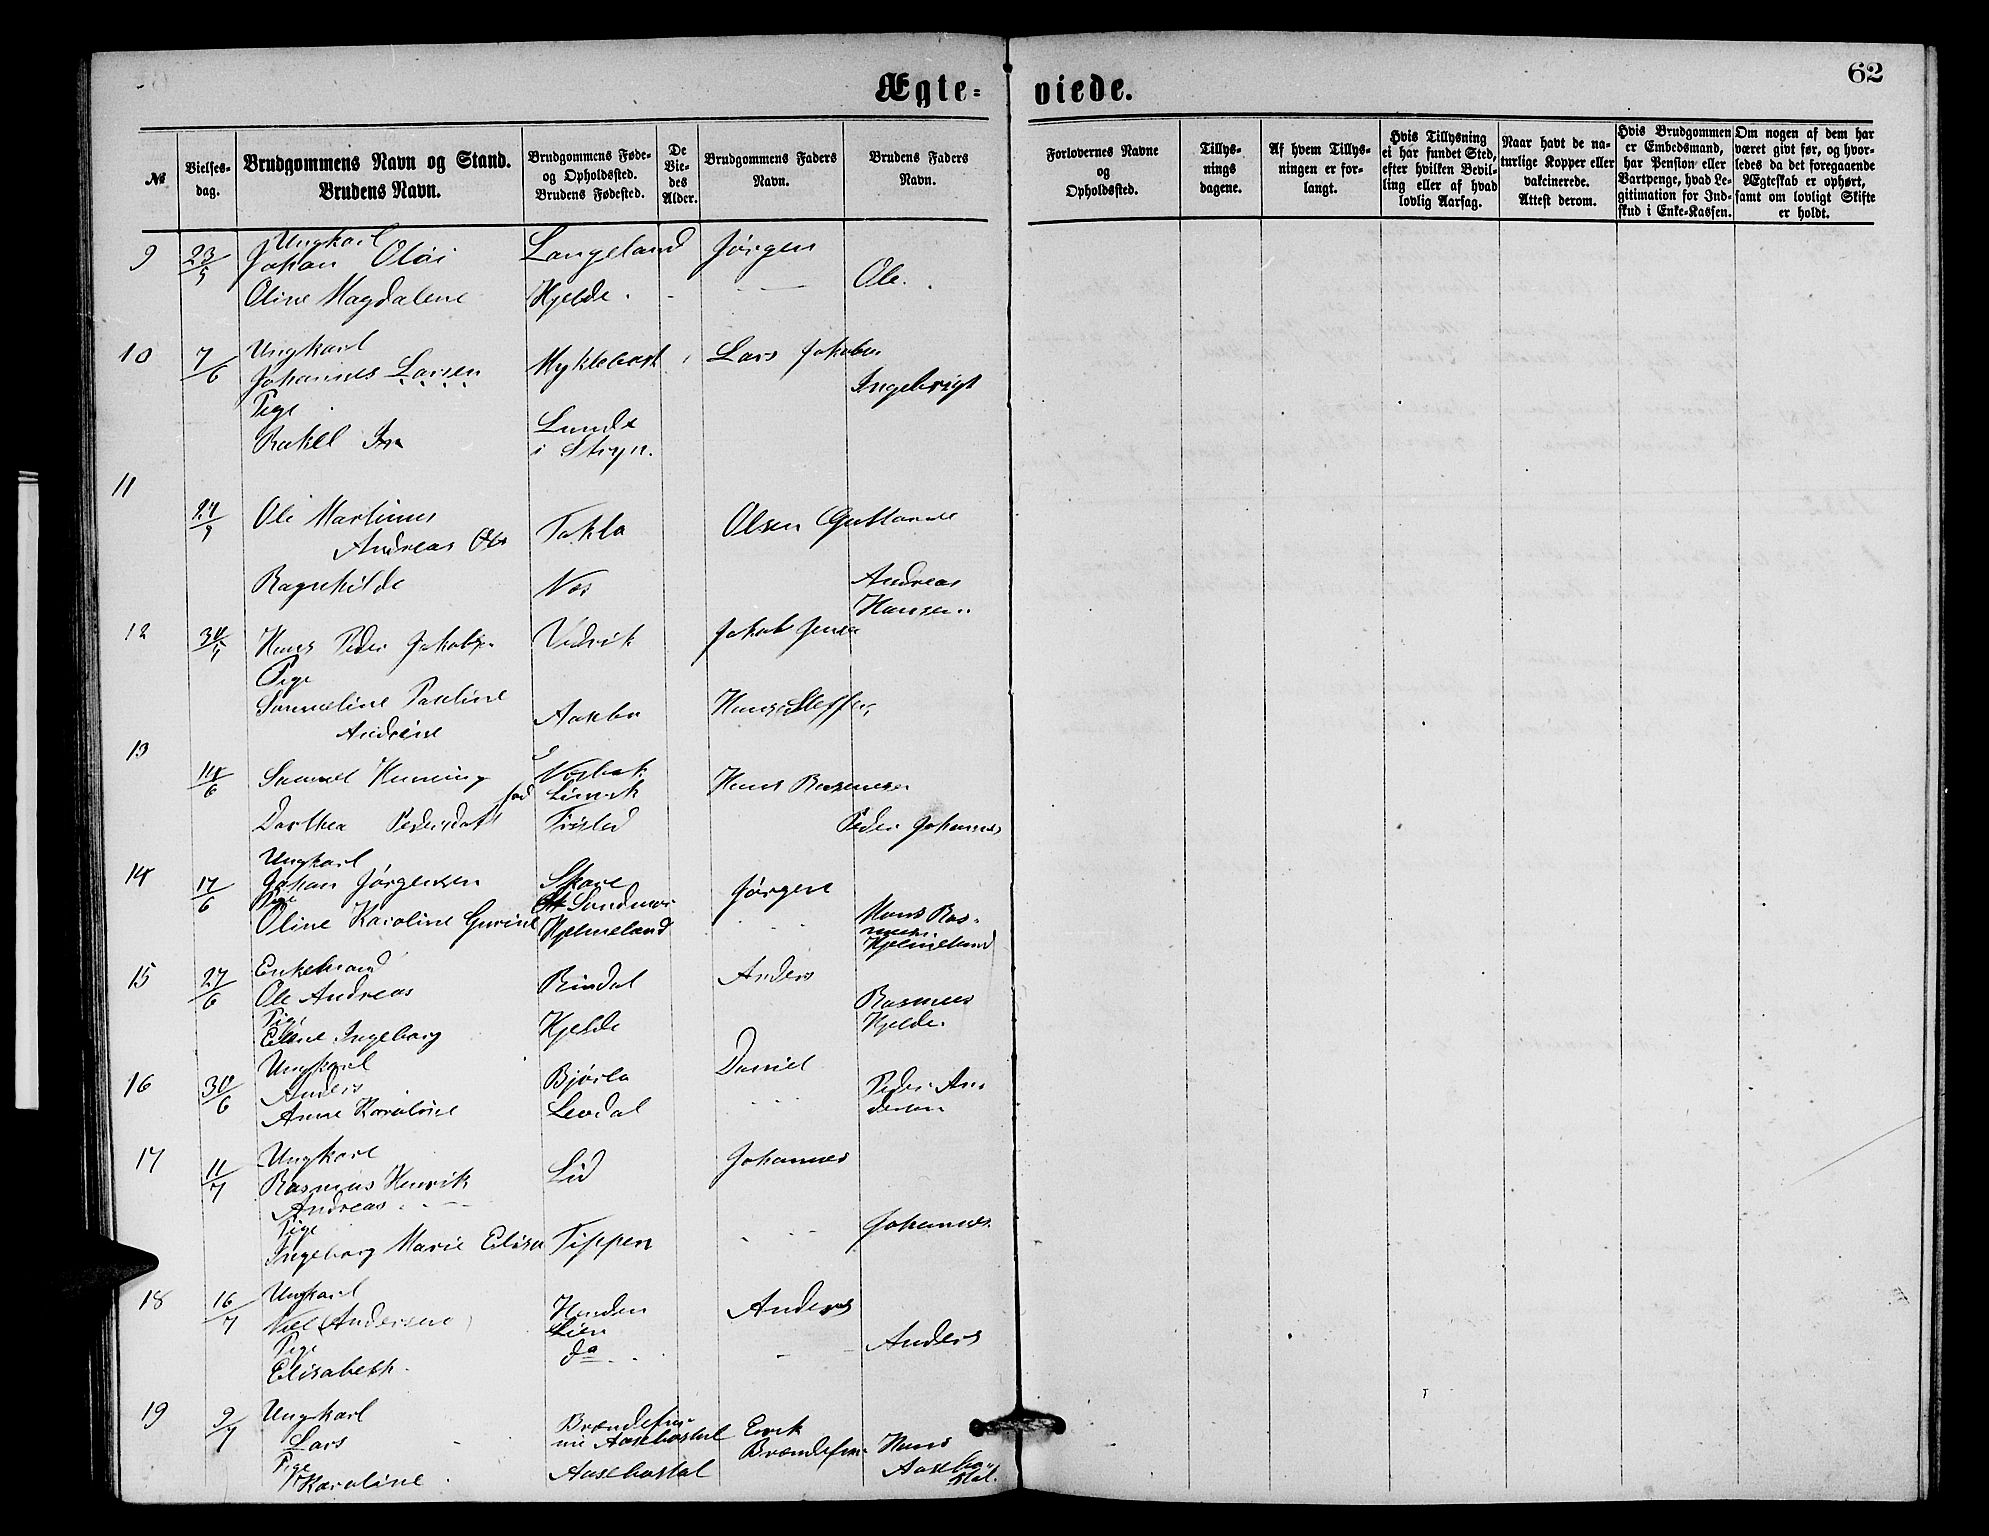 Ægte=
viede.
62
№
Vielses-
dag.
Brudgommens Navn og Stand.
Brudens Navn.
Brudgommens Føde-
og Opholdssted.
Brudens Fødested.
De
Vie-
des
Alder.
Brudgommens Faders
Navn.
Brudens Faders
Navn.
Forlovernes Navne
og
Opholdssted.
Tillys-
nings
dagene.
Af hvem Tillys-
ningen er for-
langt.
Hvis Tillysning
ei har fundet Sted,
efter hvilken Bevil-
ling eller af hvad
lovlig Aarsag.
Naar havt de na-
turlige Kopper eller
vakcinerede.
Attest derom.
Hvis Brudgommen
er Embedsmand,
har Pension eller
Vartpenge, hvad Le-
gitimation for Ind-
skud i Enke-Kassen.
Om nogen af dem har
været givt før, og hvor-
ledes da det foregaaende
Ægteskab er ophørt,
samt om lovligt Skifte
er holdt.
9
23/5
Ungkarl
Johan Oläi
Langeland
Jörgen
Ole.
Oline Magdalene
Hjelde.
10
7/6
Ungkarl
Johannes Larsen
Myklebust
Lars Jakobsen
Ingebrigt
Pige
Rakel
Lunde
i Stryn.
11
Ole Martinus
Andreas
Takla
Olsen
Ragnhilde
Nos
Andreas
Hansen
12
Hans Peder Jakobsen
Vedvik
Jakob Jensen
Pige
Pauline
Andrine
Aasebø
Hans Steffen
13
14/6
Samuel Henning
Hans Rasmusen
Dorthea Pedersdat
Peder Johannes
14
17/6
Ungkarl
Johan Jörgensen
Skare
Söndmör
Jörgen
Pige
Oline Karoline Gurine
Hjelmeland
Hans Ras-
musen
Hjelmeland
15
27/6
Enkemand
Ole Andreas
Rindal
Anders
Rasmus
Hjelde.
Pige
Eline Ingeborg
Hjelde
16
30/6
Ungkarl
Anders
Bjørlo
Daniel
Peder An
dersen
Anne Karoline
Levdal
17
11/7
Ungkarl
Rasmus Henrik
Andreas
Lid
Johannes
Pige
Ingeborg Marie Elisa
Tippen
Johannes
18
16/7
Ungkarl
Nils Andersen
Henden
Lien
Anders
Anders
Pige
Elisabeth
do
19
9/7
Ungkarl
Lars
Aasebøstøl
Eirik
Hans
Aasebø-
støl.
Pige
Karoline
Aasebøstøl